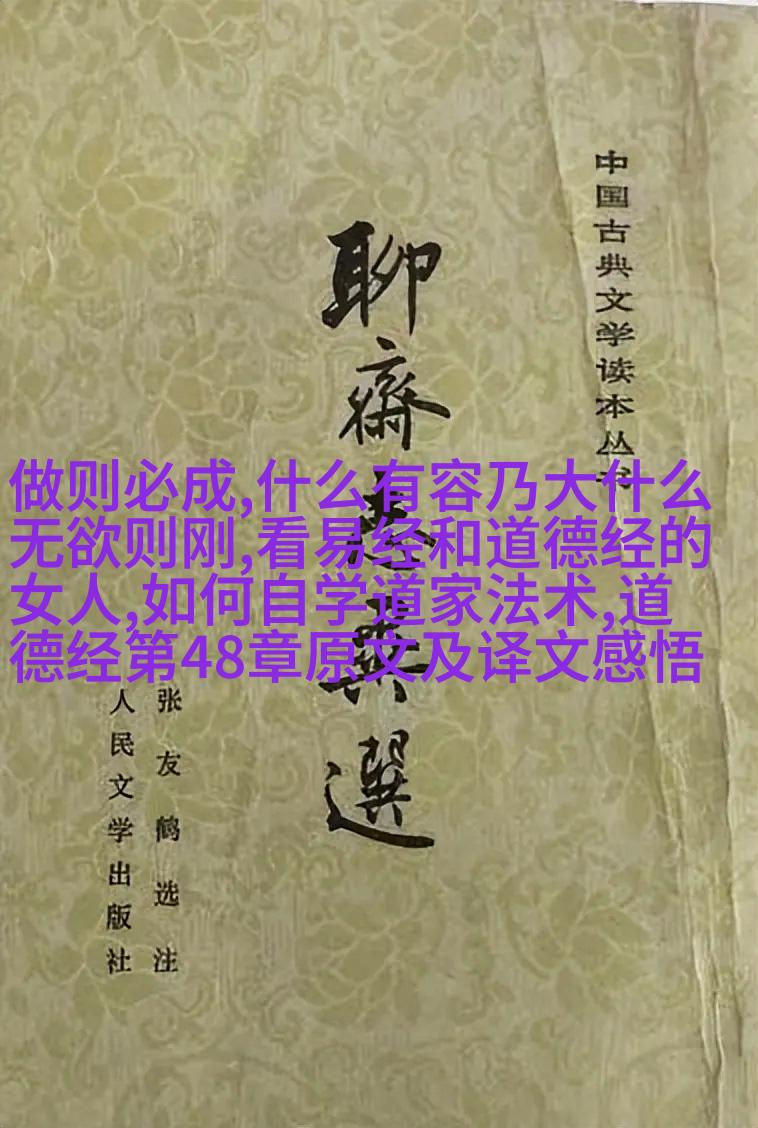 中国古典文学读本丛书
聊齋志異選
张友鹤选注
人民文学出版社
做则必成,什么有容乃大什么
无欲则刚,看易经和道德经的
女人,如何自学道家法术,道
德经第48章原文及译文感悟